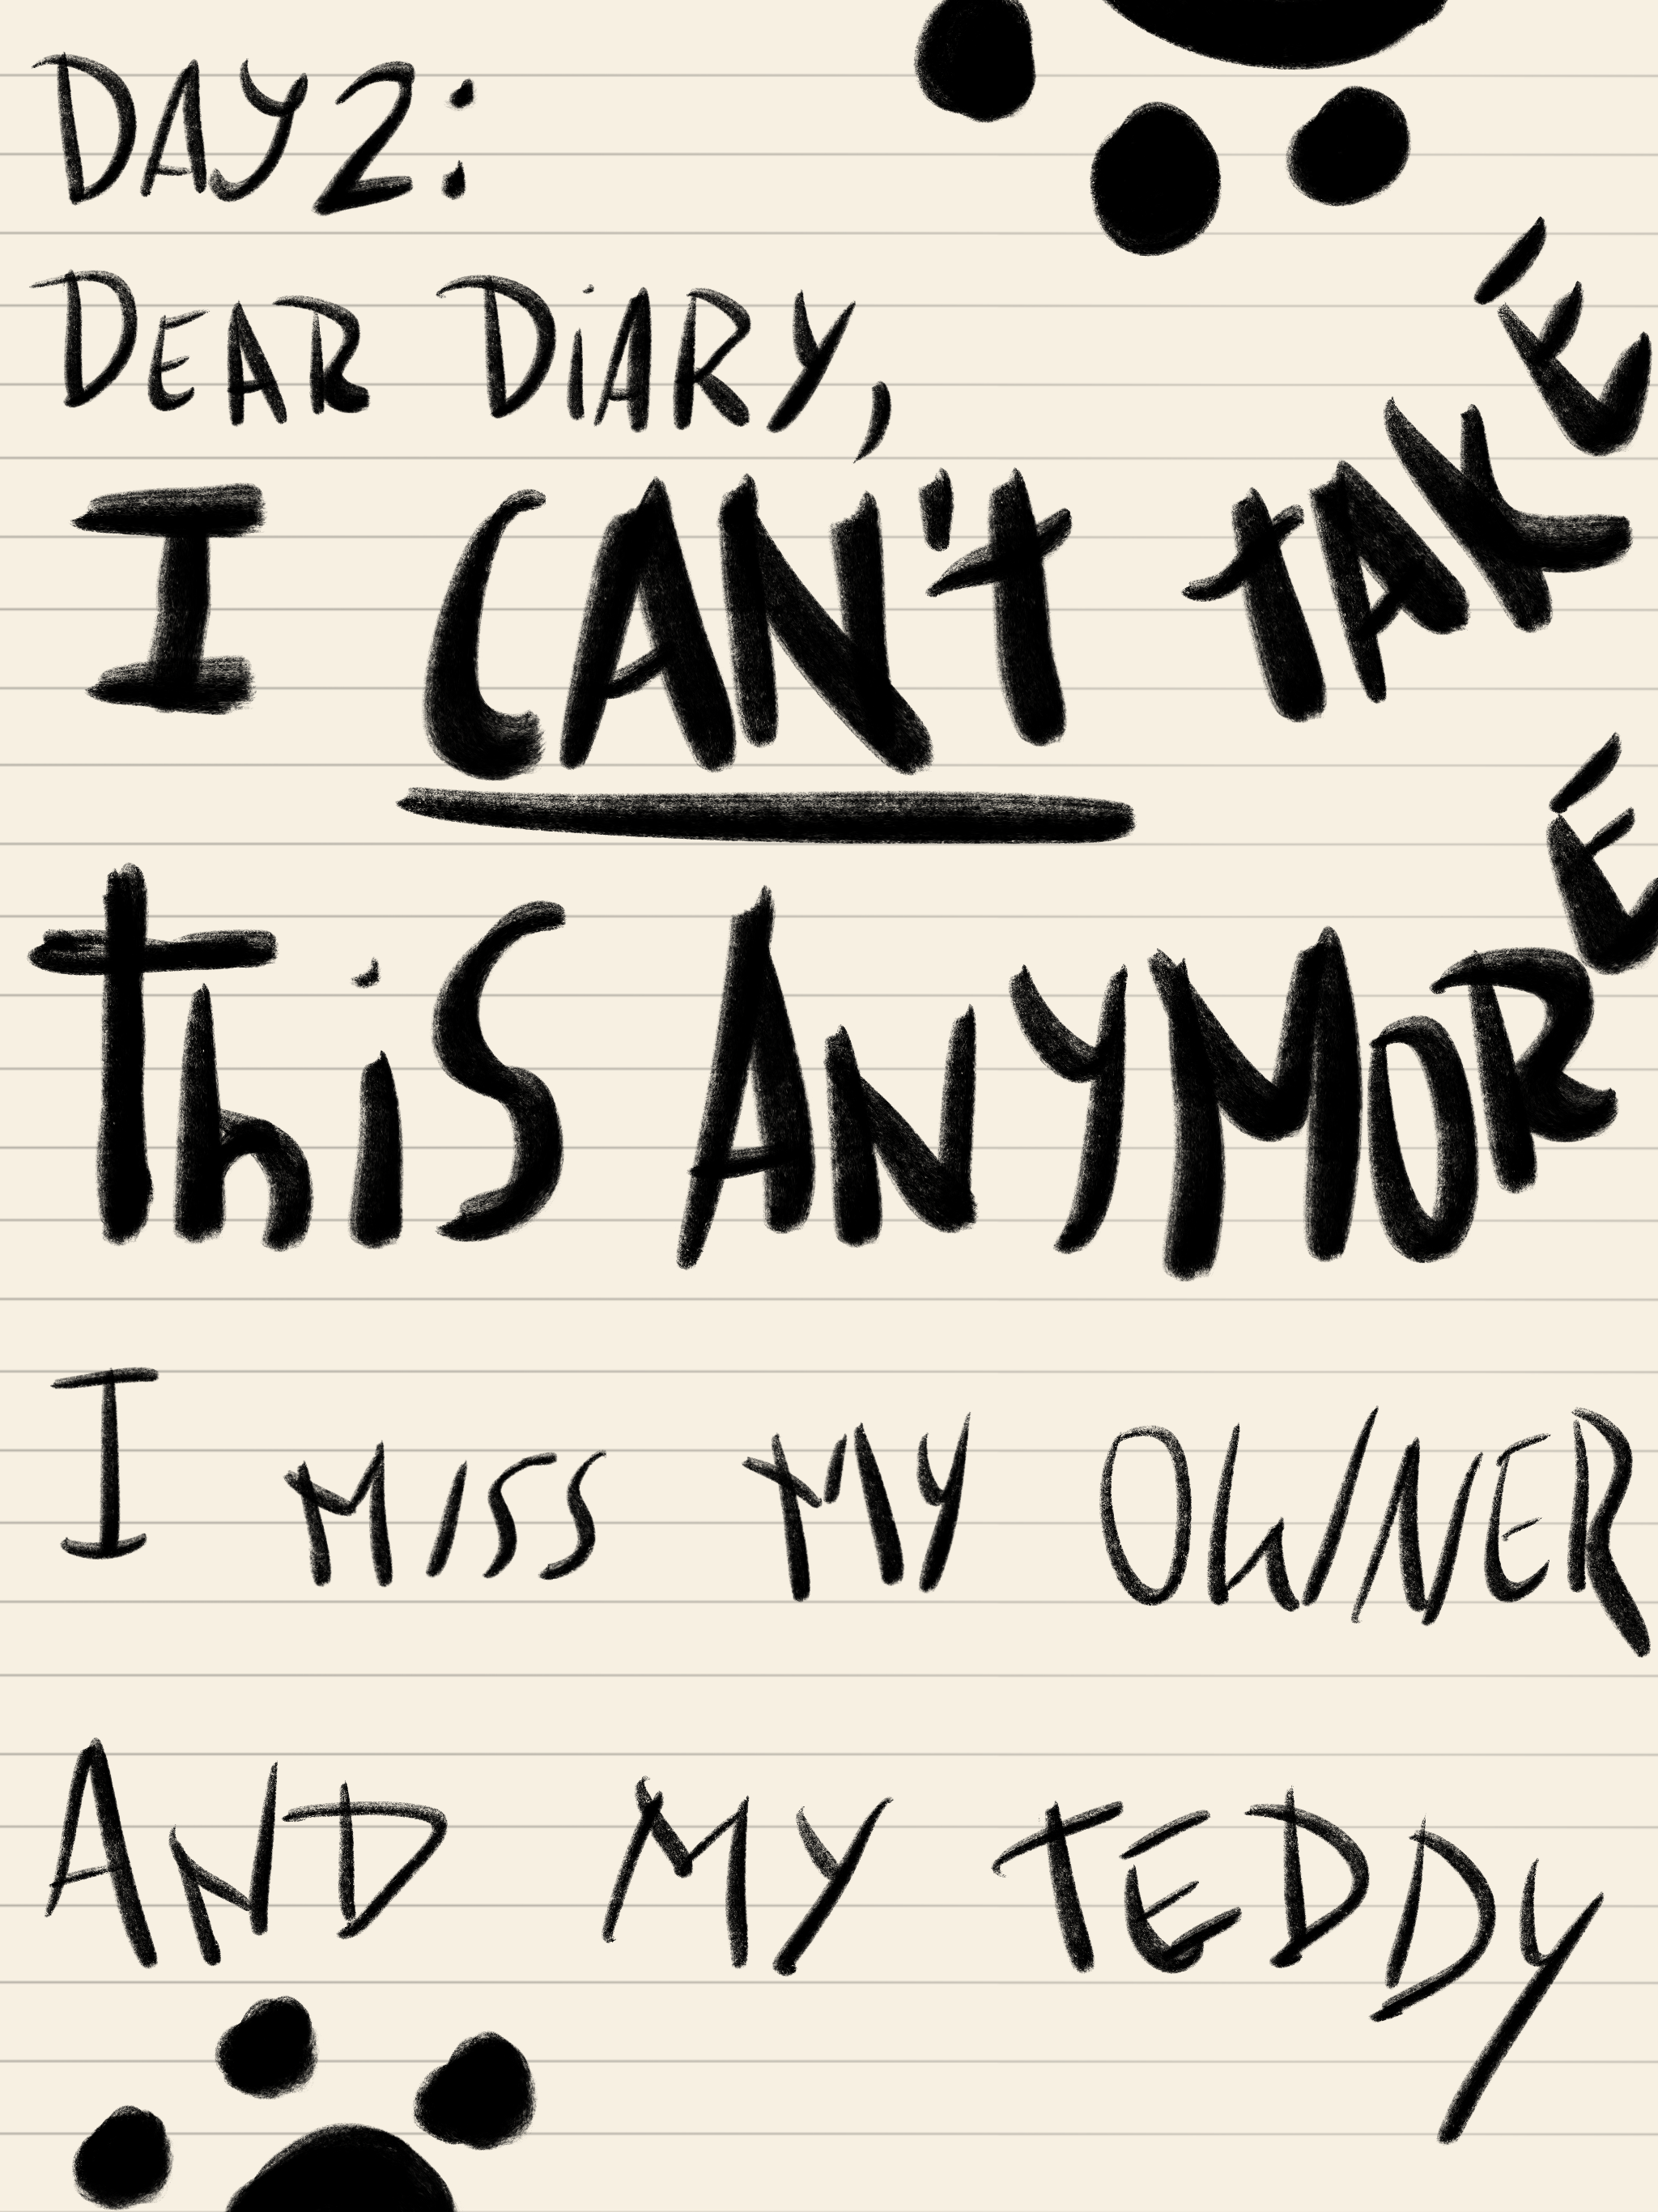 DAY 2:
DEAR DiARY,
I CAN't tAKE
thiS ANYMORE
I MISS MY OWNER
AND MY TEDDY